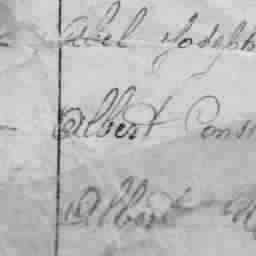 Abel Joseph
Albert Cons
Albert